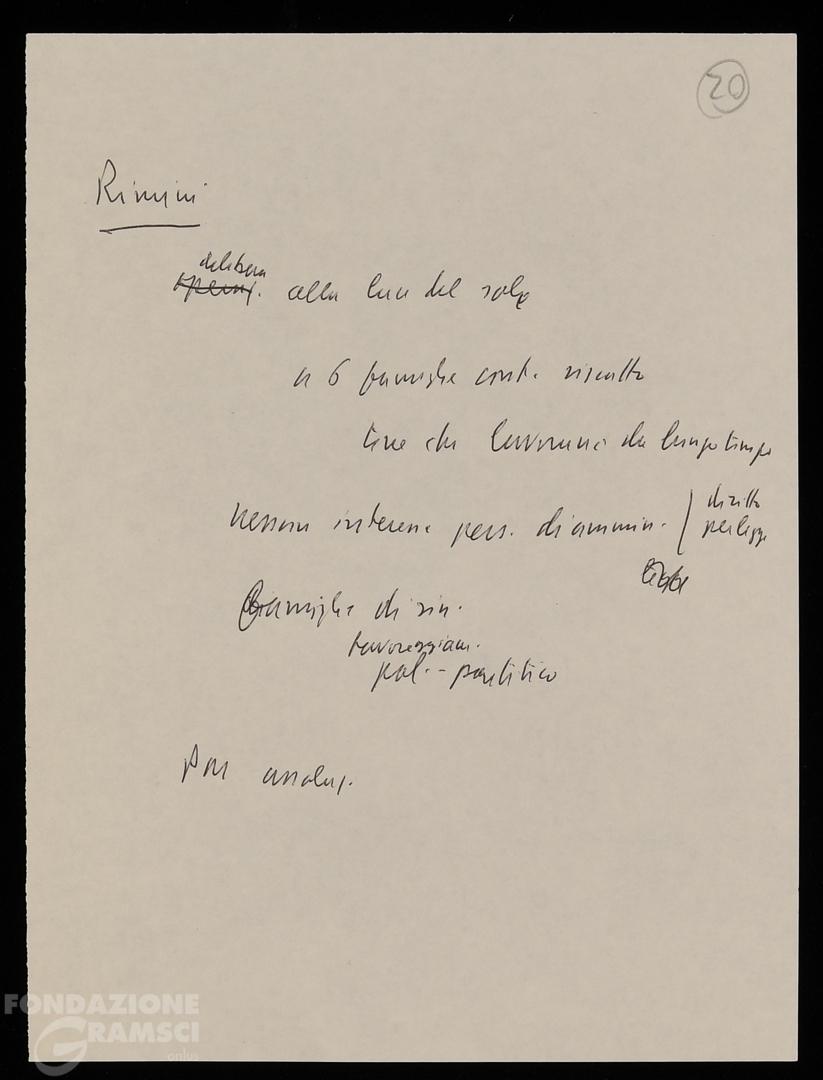 20
Rimini
delibera
operaz. alla luce del sole
a 6 famiglie cont. riscatto
terre che lavorano da lungo tempo
nessun interesse pers. di ammin. diritto
per legge
famiglie di sin.
favoreggiam.
pol. - partitico
FONDAZIONE
GRAMSCI
onlus